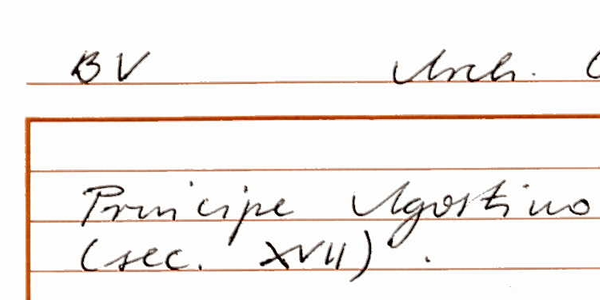 BV Arch.
Principe Agostino
(sec. XVII).